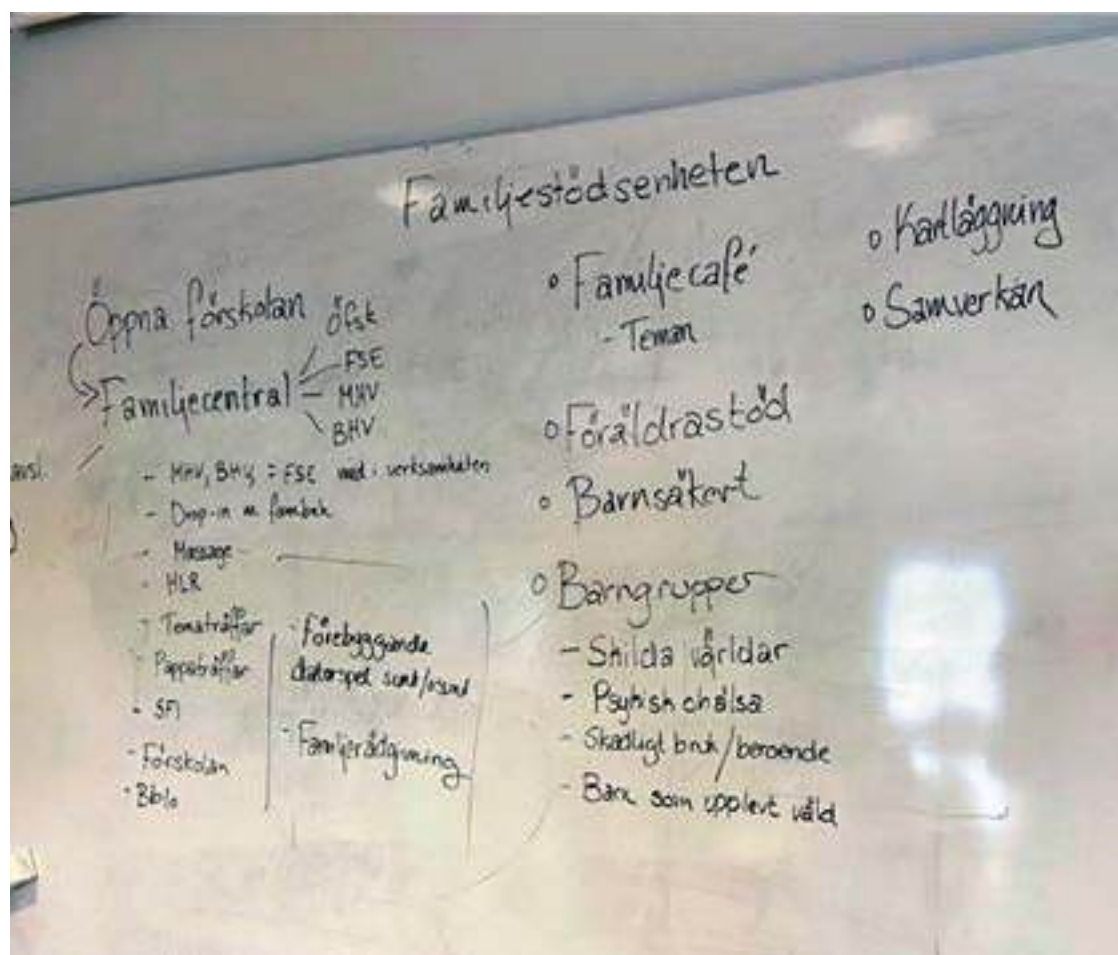 Familjestödsenheten
Öppna förskolan
Familjecentral
Öfsk
FSE
MHV
BHV
avsl.
- MHV, BHV, = FSE med i verksamheten
- Drop-in m fambeh
- Massage
- HLR
- Tematräffar
- Pappaträffar
- SFI
- Förskolan
- Biblo
- förebyggande
dataspel sunt/osunt
- Familjerådgivning
o Familjecafé
- Teman
o Föräldrastöd
o Barnsäkert
o Barngrupper
- Skilda världar
- Psykisk ohälsa
- Skadligt bruk/beroende
- Barn som upplevt våld
o Kartläggning
o Samverkan